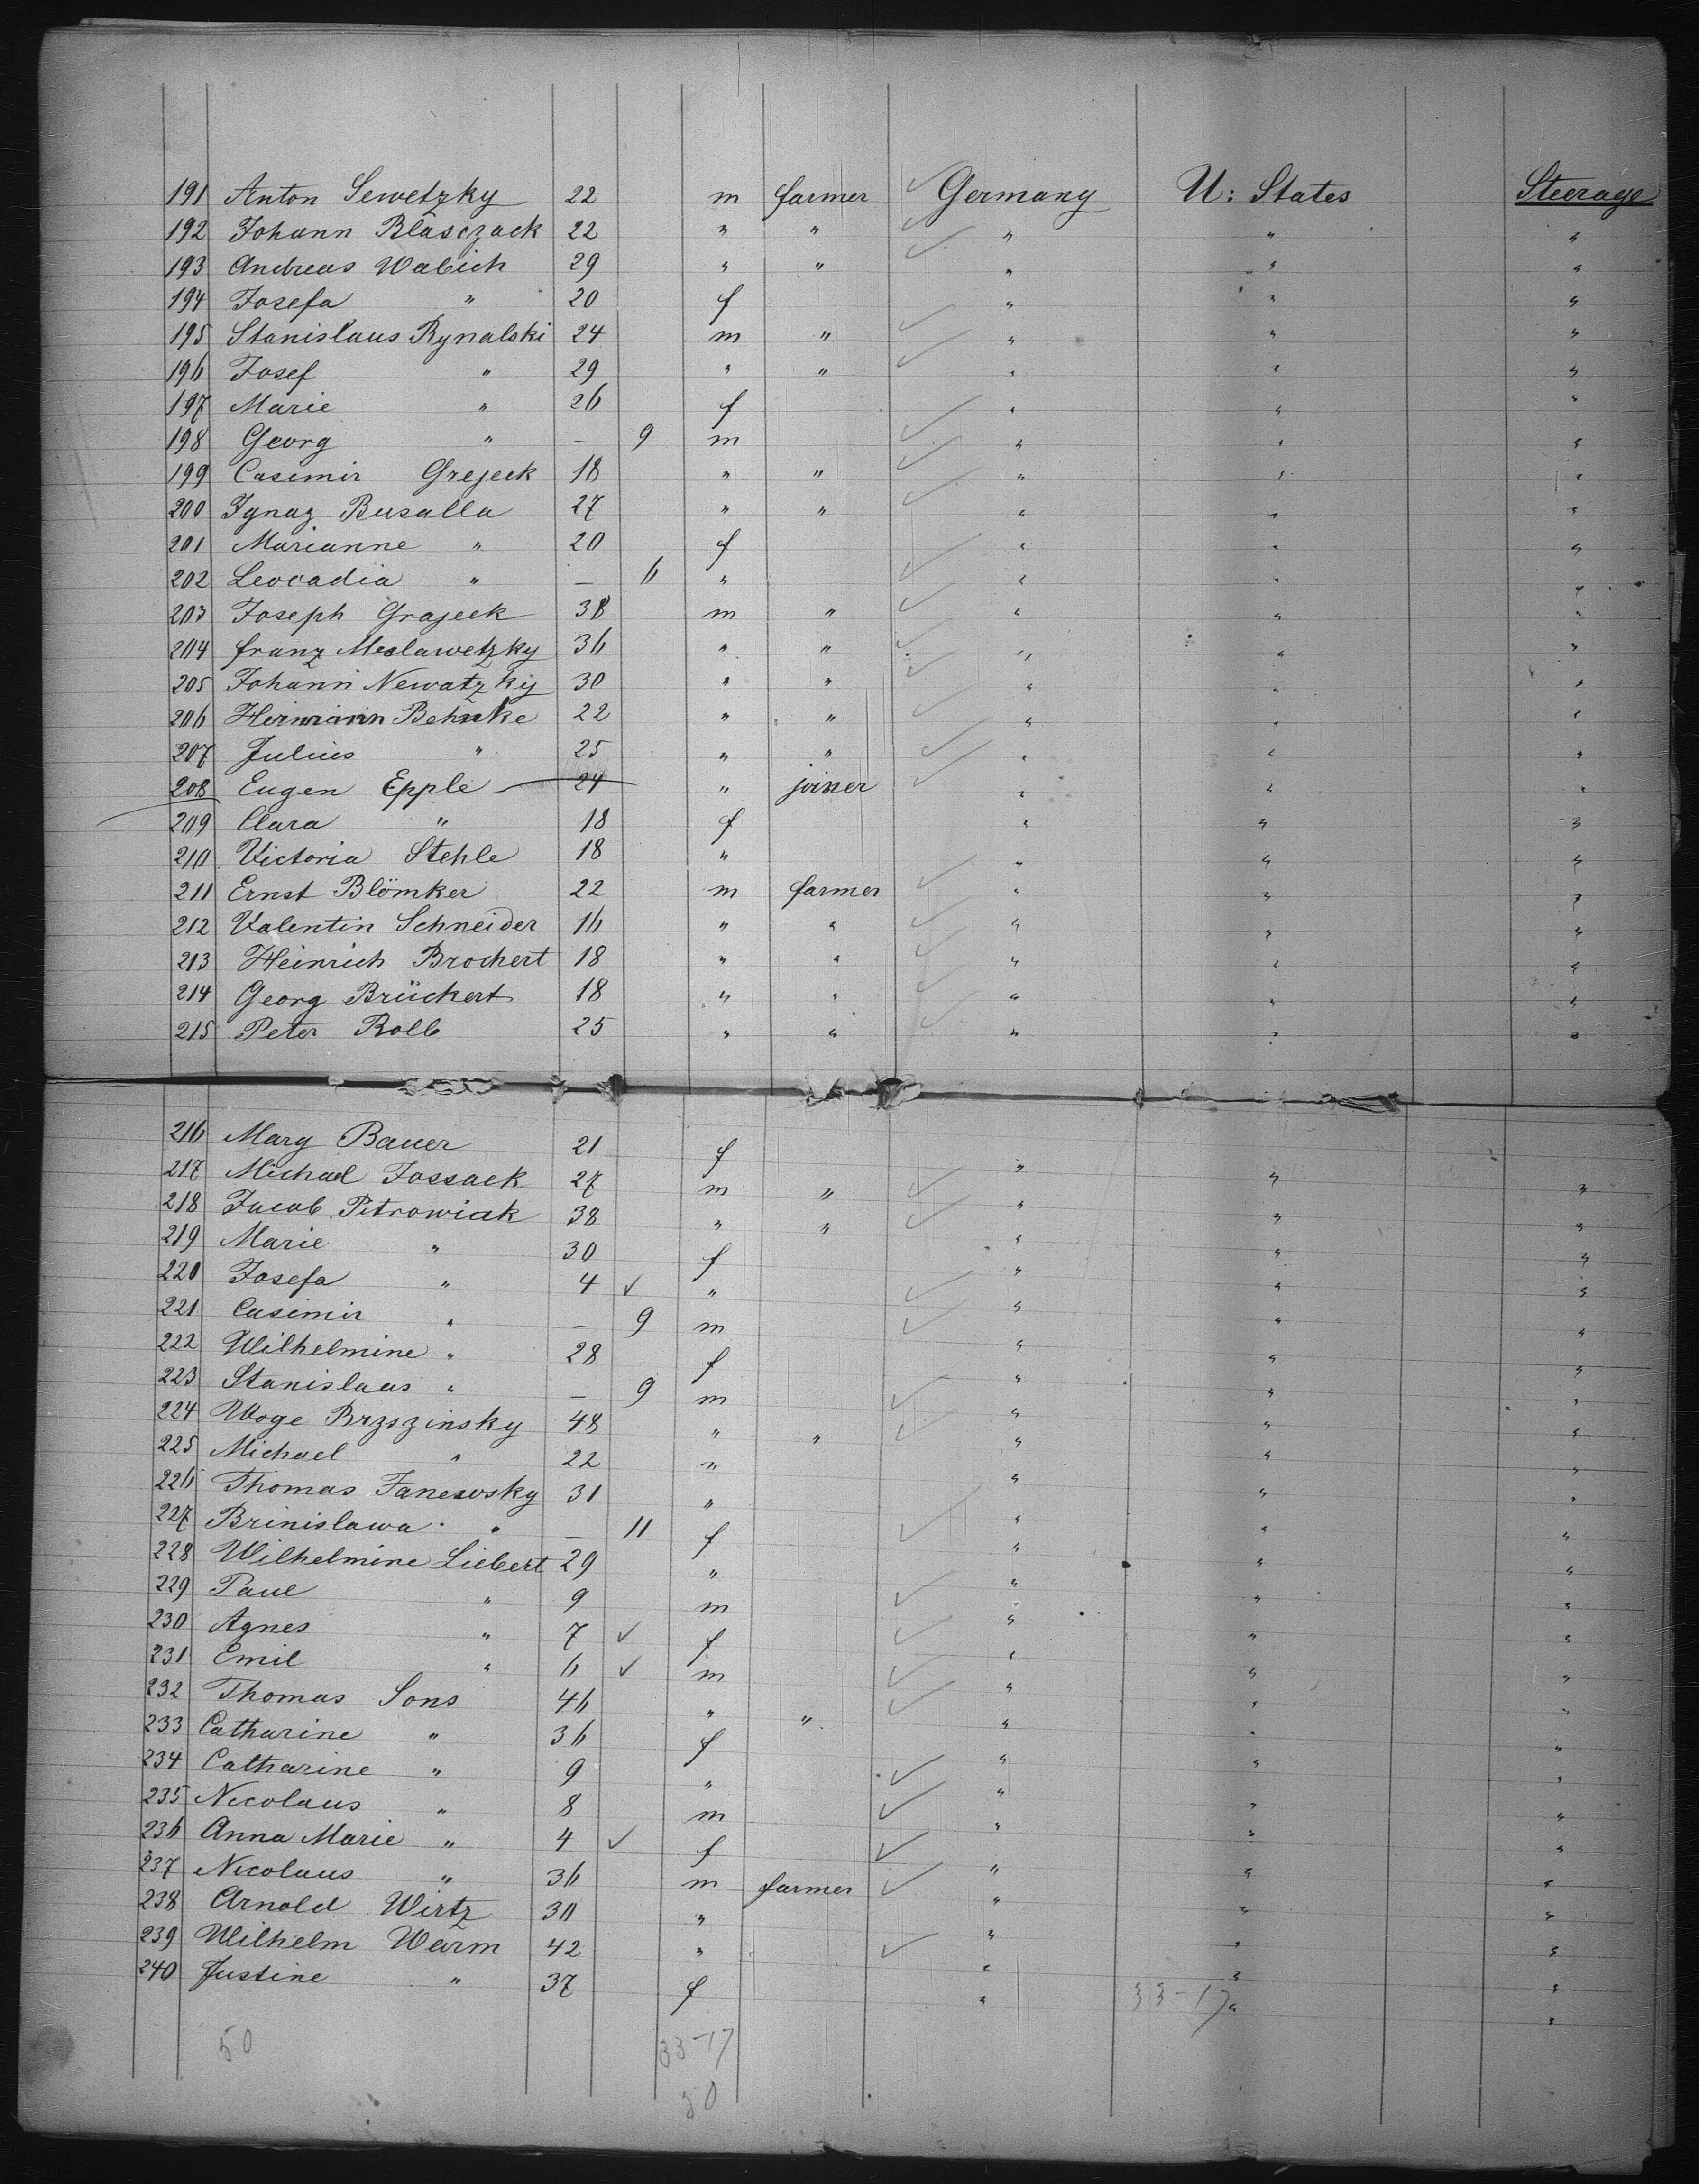 191 Anton Sewetzky 22 m farmer Germany U: States Steerage
192 Johann Blasczack 22 " " " " "
193 Andreas Wabich 29 " " " " "
194 Josefa " 20 f " " "
195 Stanislaus Rynalski 24 m " " " "
196 Josef " 29 " " " " "
197 Marie " 26 f " " "
198 Georg " — 9 m " " "
199 Casimir Grejeck 18 " " " " "
200 Ignaz Busalla 27 " " " " "
201 Marianne " 20 f " " "
202 Leocadia " — 6 " " " "
203 Joseph Grajeck 38 m " " " "
204 Franz Meslawetzky 36 " " " " "
205 Johann Newatzky 30 " " " " "
206 Hermann Behnke 22 " " " " "
207 Julius " 25 " " " " "
208 Eugen Epple 24 " joiner " " "
209 Clara " 18 f " " "
210 Victoria Stehle 18 " " " "
211 Ernst Blömker 22 m farmer " " "
212 Valentin Schneider 16 " " " " "
213 Heinrich Brochert 18 " " " " "
214 Georg Brückert 18 " " " " "
215 Peter Rolb 25 " " " " "
216 Mary Bauer 21 f " " "
217 Michael Jossack 27 m " " " "
218 Jacob Petrowiak 38 " " " " "
219 Marie " 30 f " " "
220 Josefa " 4 ✓ " " " "
221 Casimir " — 9 m " " "
222 Wilhelmine " 28 f " " "
223 Stanislaus " — 9 m " " "
224 Woge Brzszinsky 48 " " " " "
225 Michael " 22 " " " "
226 Thomas Janewsky 31 " " " "
227 Brinislawa " — 11 f " " "
228 Wilhelmine Liebert 29 " " " "
229 Paul " 9 m " " "
230 Agnes " 7 ✓ f " " "
231 Emil " 6 ✓ m " " "
232 Thomas Sons 46 " " " " "
233 Catharine " 36 f " " "
234 Catharine " 9 " " " "
235 Nicolaus " 8 m " " "
236 Anna Marie " 4 ✓ f " " "
237 Nicolaus " 36 m farmer " " "
238 Arnold Wirtz 30 " " " "
239 Wilhelm Warm 42 " " " "
240 Justine " 37 f " " "
33-17
50 33-17
50